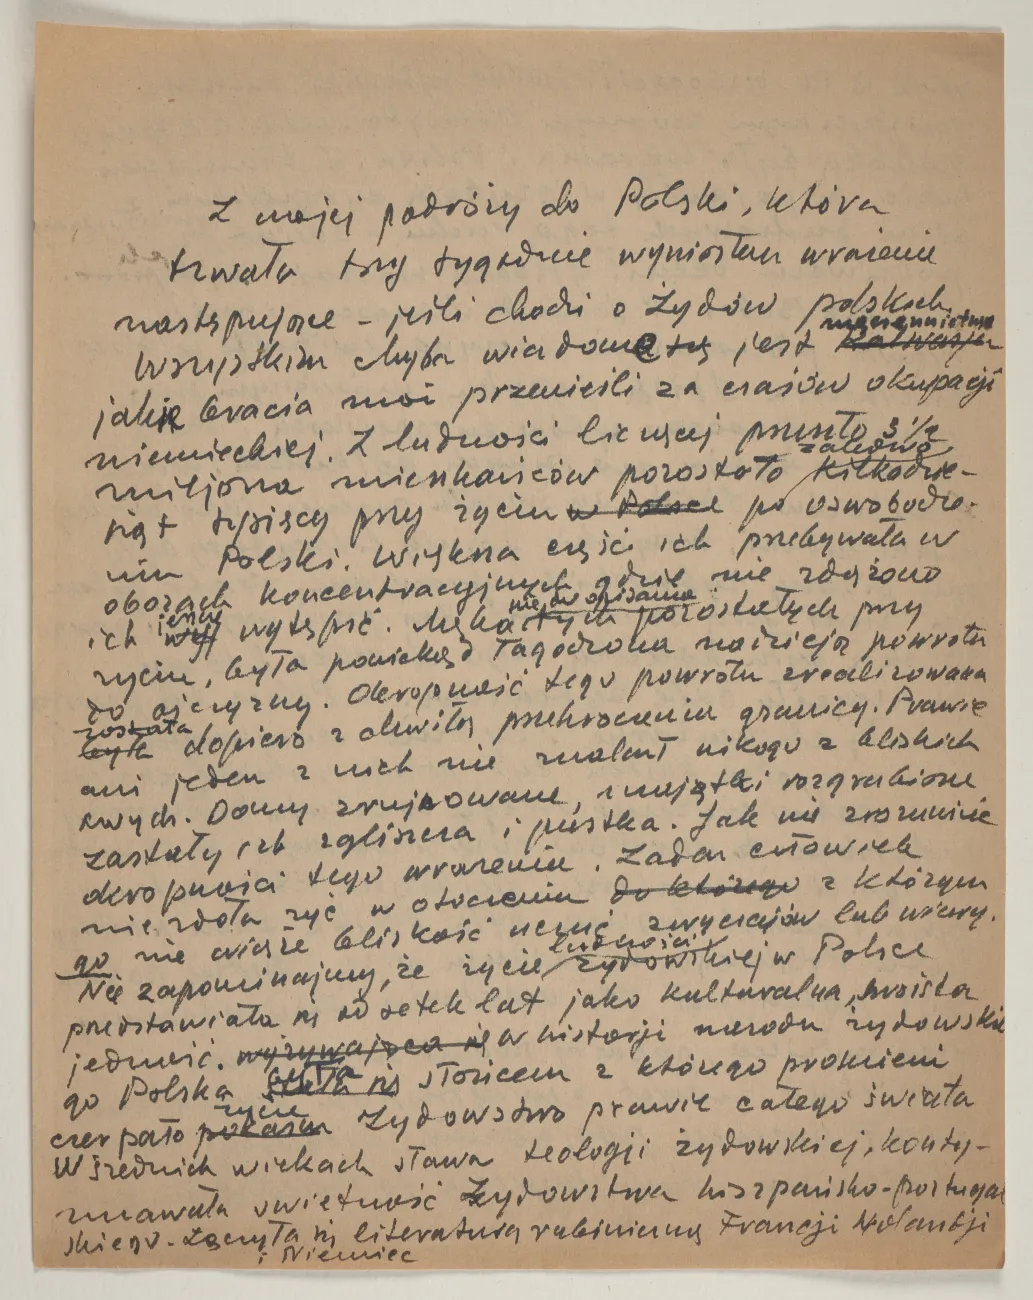 Z mojej podróży do Polski, która
trwała trzy tygodnie wyniosłam wrażenie
następujące - jeśli chodzi o Żydów polskich.
Wszystkim chyba wiadome jest męczeństwo
jakie bracia moi przenieśli za czasów okupacji
niemieckiej. Z ludności liczącej ponad 3 1/2
miljona mieszkańców pozostało zaledwie kilkadzie-
siąt tysięcy przy życiu w Polsce po oswobodze-
niu Polski. Większa część ich przebywała w
obozach koncentracyjnych gdzie nie zdążono
ich wytępić. Męka nie do opisania tych pozostałych przy
życiu, była poniekąd łagodzona nadzieją powrotu
do ojczyzny. Okropność tego powrotu zrealizowana
została była dopiero z chwilą przekroczenia granicy. Prawie
ani jeden z nich nie znalazł nikogo z bliskich
swych. Domy zrujnowane, majątki rozgrabione
zastały ich zgliszcza i pustka. Jak nie zrozumieć
okropności tego wrażenia. Żaden człowiek
nie zdoła żyć w otoczeniu do którego z którym
go nie wiąże bliskość uczuć zwyczajów lub wiary.
Nie zapominajmy, że życie ludności żydowskiej w Polsce
przedstawiała się od setek lat jako kulturalna, swoista
jedność. wyżywająca się w historji narodu żydowskie
go Polska była stała się słońcem z którego promieni
czerpało życie Żydowstwo prawie całego świata
W średnich wiekach sława teologji żydowskiej, konty-
nuowała świetność Żydowstwa hiszpańsko-portugal
skiego. Łączyła się literaturą rabiniczną Francji Holandji
i Niemiec